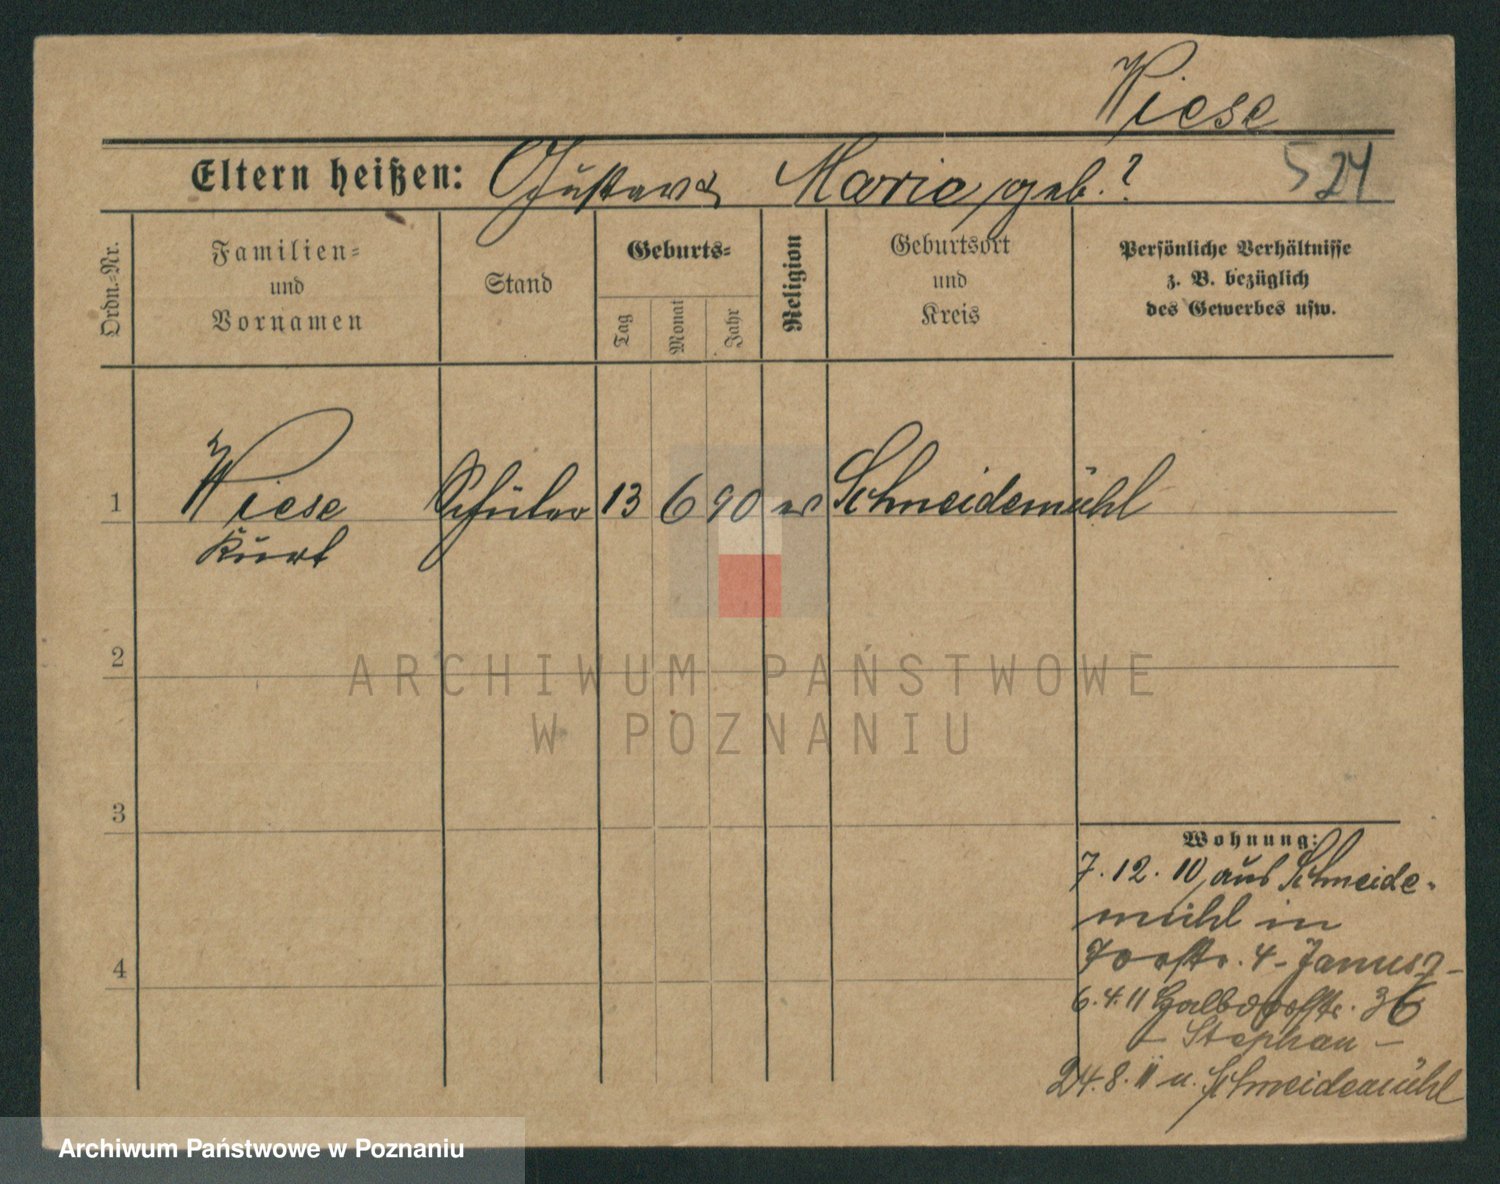 Wiese
Eltern heißen: Gustav u Maria, geb. ?
524
Ordn.-Nr.
Familien-
und
Vornamen
Stand
Geburts-
Tag
Monat
Jahr
Religion
Geburtsort
und
Kreis
Persönliche Verhältnisse
z. B. bezüglich
des Gewerbes usw.
1
Wiese
Kurt
Schüler
13
6
90
ev
Schneidemühl
2
ARCHIWUM PAŃSTWOWE
W POZNANIU
3
Wohnung:
7. 12. 10, aus Schneide-
mühl in
4. Janusz-
4
6. 4. 11 36
- Stephan -
24. 8. 11 n. Schneidemühl
Archiwum Państwowe w Poznaniu